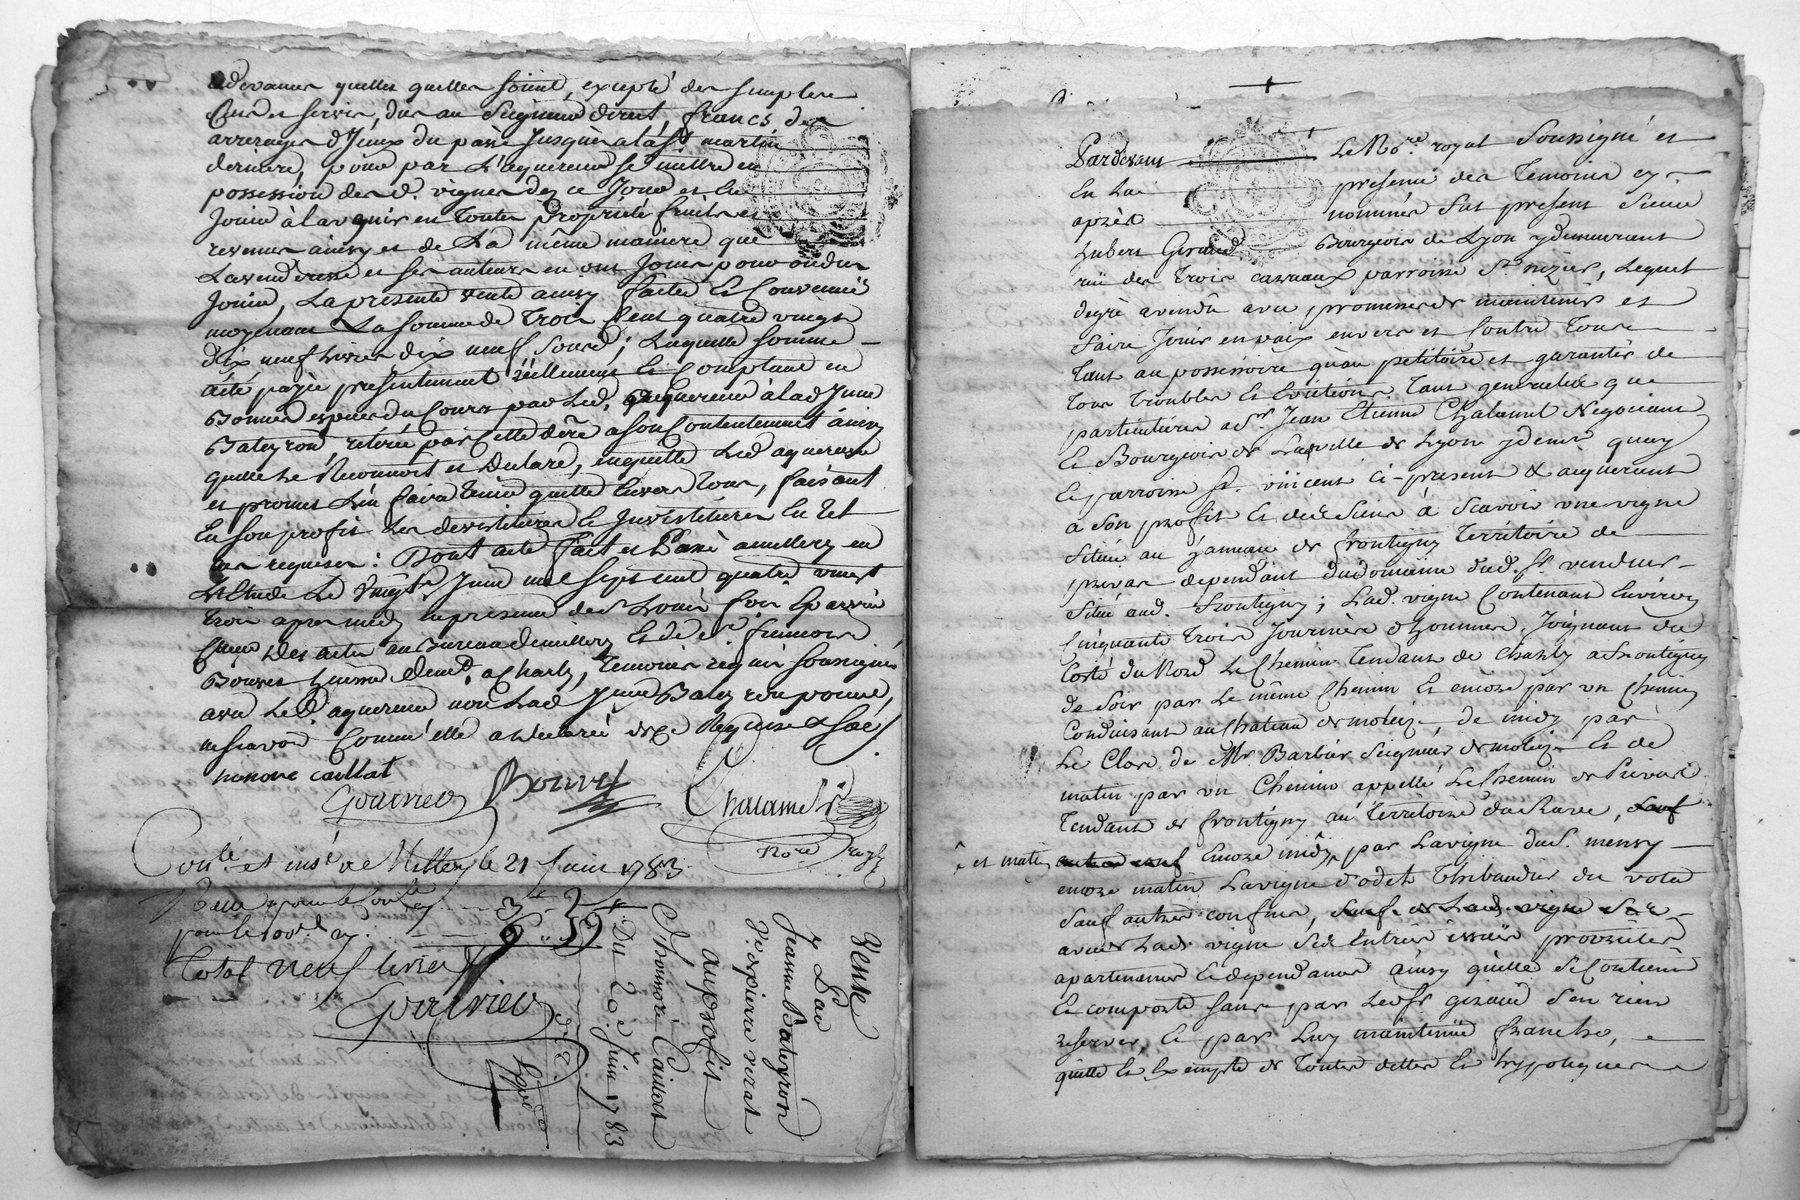 redevances quelles quelles soient, excepté des simples
Cens et servis, dus au Seigneur direct, francs des
arrerages d'Iceux du passé Jusques a la St martin
derniere, pour par L'aquereur se mettre en
possession des d. vignes des ce Jour et en
Jouir à l'avenir en toute propriété fruits et
revenus ainsy et de La même maniere que
La venderesse et ses auteurs en ont Joui pour ou du
Jouir, La présente vente ainsy faite et Convenue
moyenant La somme de Trois Cent quatre vingt
dix neuf livres dix neuf sous; Laquelle somme
a été payée présentement réellement et Comptant en
Bonnes espèces du Cours par led. aquereur à lad
Bateyron, retirée par elle a son Contentement ainsy
quelle Le Reconnoit et Declare, en quitte Led aquereur
et promet L'en faire tenir quitte Envers Tous, faisant
En son profit Les devestitures et Investitures En tel
cas requises: Dont acte fait et Passé a millery en
L'Etude Le Vingt Juin mil sept cent quatre vingt
trois apres midy en presence de Sr Louis
des actes au Bureau de millery Et de Sr francois
Bouvet demt a Charly, temoins requis soussignés
avec Led. aquereur non Lad Bateyron pour
ne scavoir Comme elle a declaré de ce Requise &
honoré caillat
Gourrieu Bouvet Chalamel
Nore Royal
Conlé et insé a Millery le 21 Juin 1783
Total neuf livres
Gourrieu
Vente
Par
Jeanne Bateyron
Ve de pierre verat
au profit
d'honoré Caillat
Du 20 Juin 1783
Expédé
Pardevant Le Nore royal Soussigné et
En La presence des Temoins cy
après nommés fut présent Sieur
hubert Giraud Bourgeois de Lyon y demeurant
rüe des Trois carreaux parroisse St nizier, Lequel
degré a vendu avec promesse de maintenir et
faire Jouir en paix envers et Contre Tous
Tant au possessoire qu'au petitoire et garantir de
tous troubles Et Evictions Tant generalles que
particulieres a Sr. Jean Etienne Chalamel Negociant
Et Bourgeois de La ville de Lyon y demt quay
Et parroisse St. vincent Ci-present & acquerant
à son profit Et des Siens à Scavoir une vigne
située au hameau de frontigny Territoire de
privas dependant du domaine dud. Sr vendeur
Situé aud. frontigny; Lad. vigne Contenant Environ
Cinquante trois Journées d'hommes, Joignant du
Costé du Nord Le Chemin Tendant de Charly a frontigny
de Soir par Le même Chemin Et encore par un Chemin
Conduisant au Chateau de de midy par
Le Clos de Mr Barbier Seigneur de Et de
matin par un Chemin appellé Le Chemin de Privas
Tendant de frontigny au Territoire du Rave, sauf
et matin encore midy par La vigne du S. mensy
encore matin La vigne d'odet Thibaudier
Sauf autres confins,
avec Lade vigne Ses Entrées issües proximités
apartenances et dependances ainsy qu'elle se Contient
Et comporte Sans par Led Sr giraud S'en rien
reserver, Et par Luy maintenüe franche,
quitte Et Exempte de Toutes dettes Et hypoteques